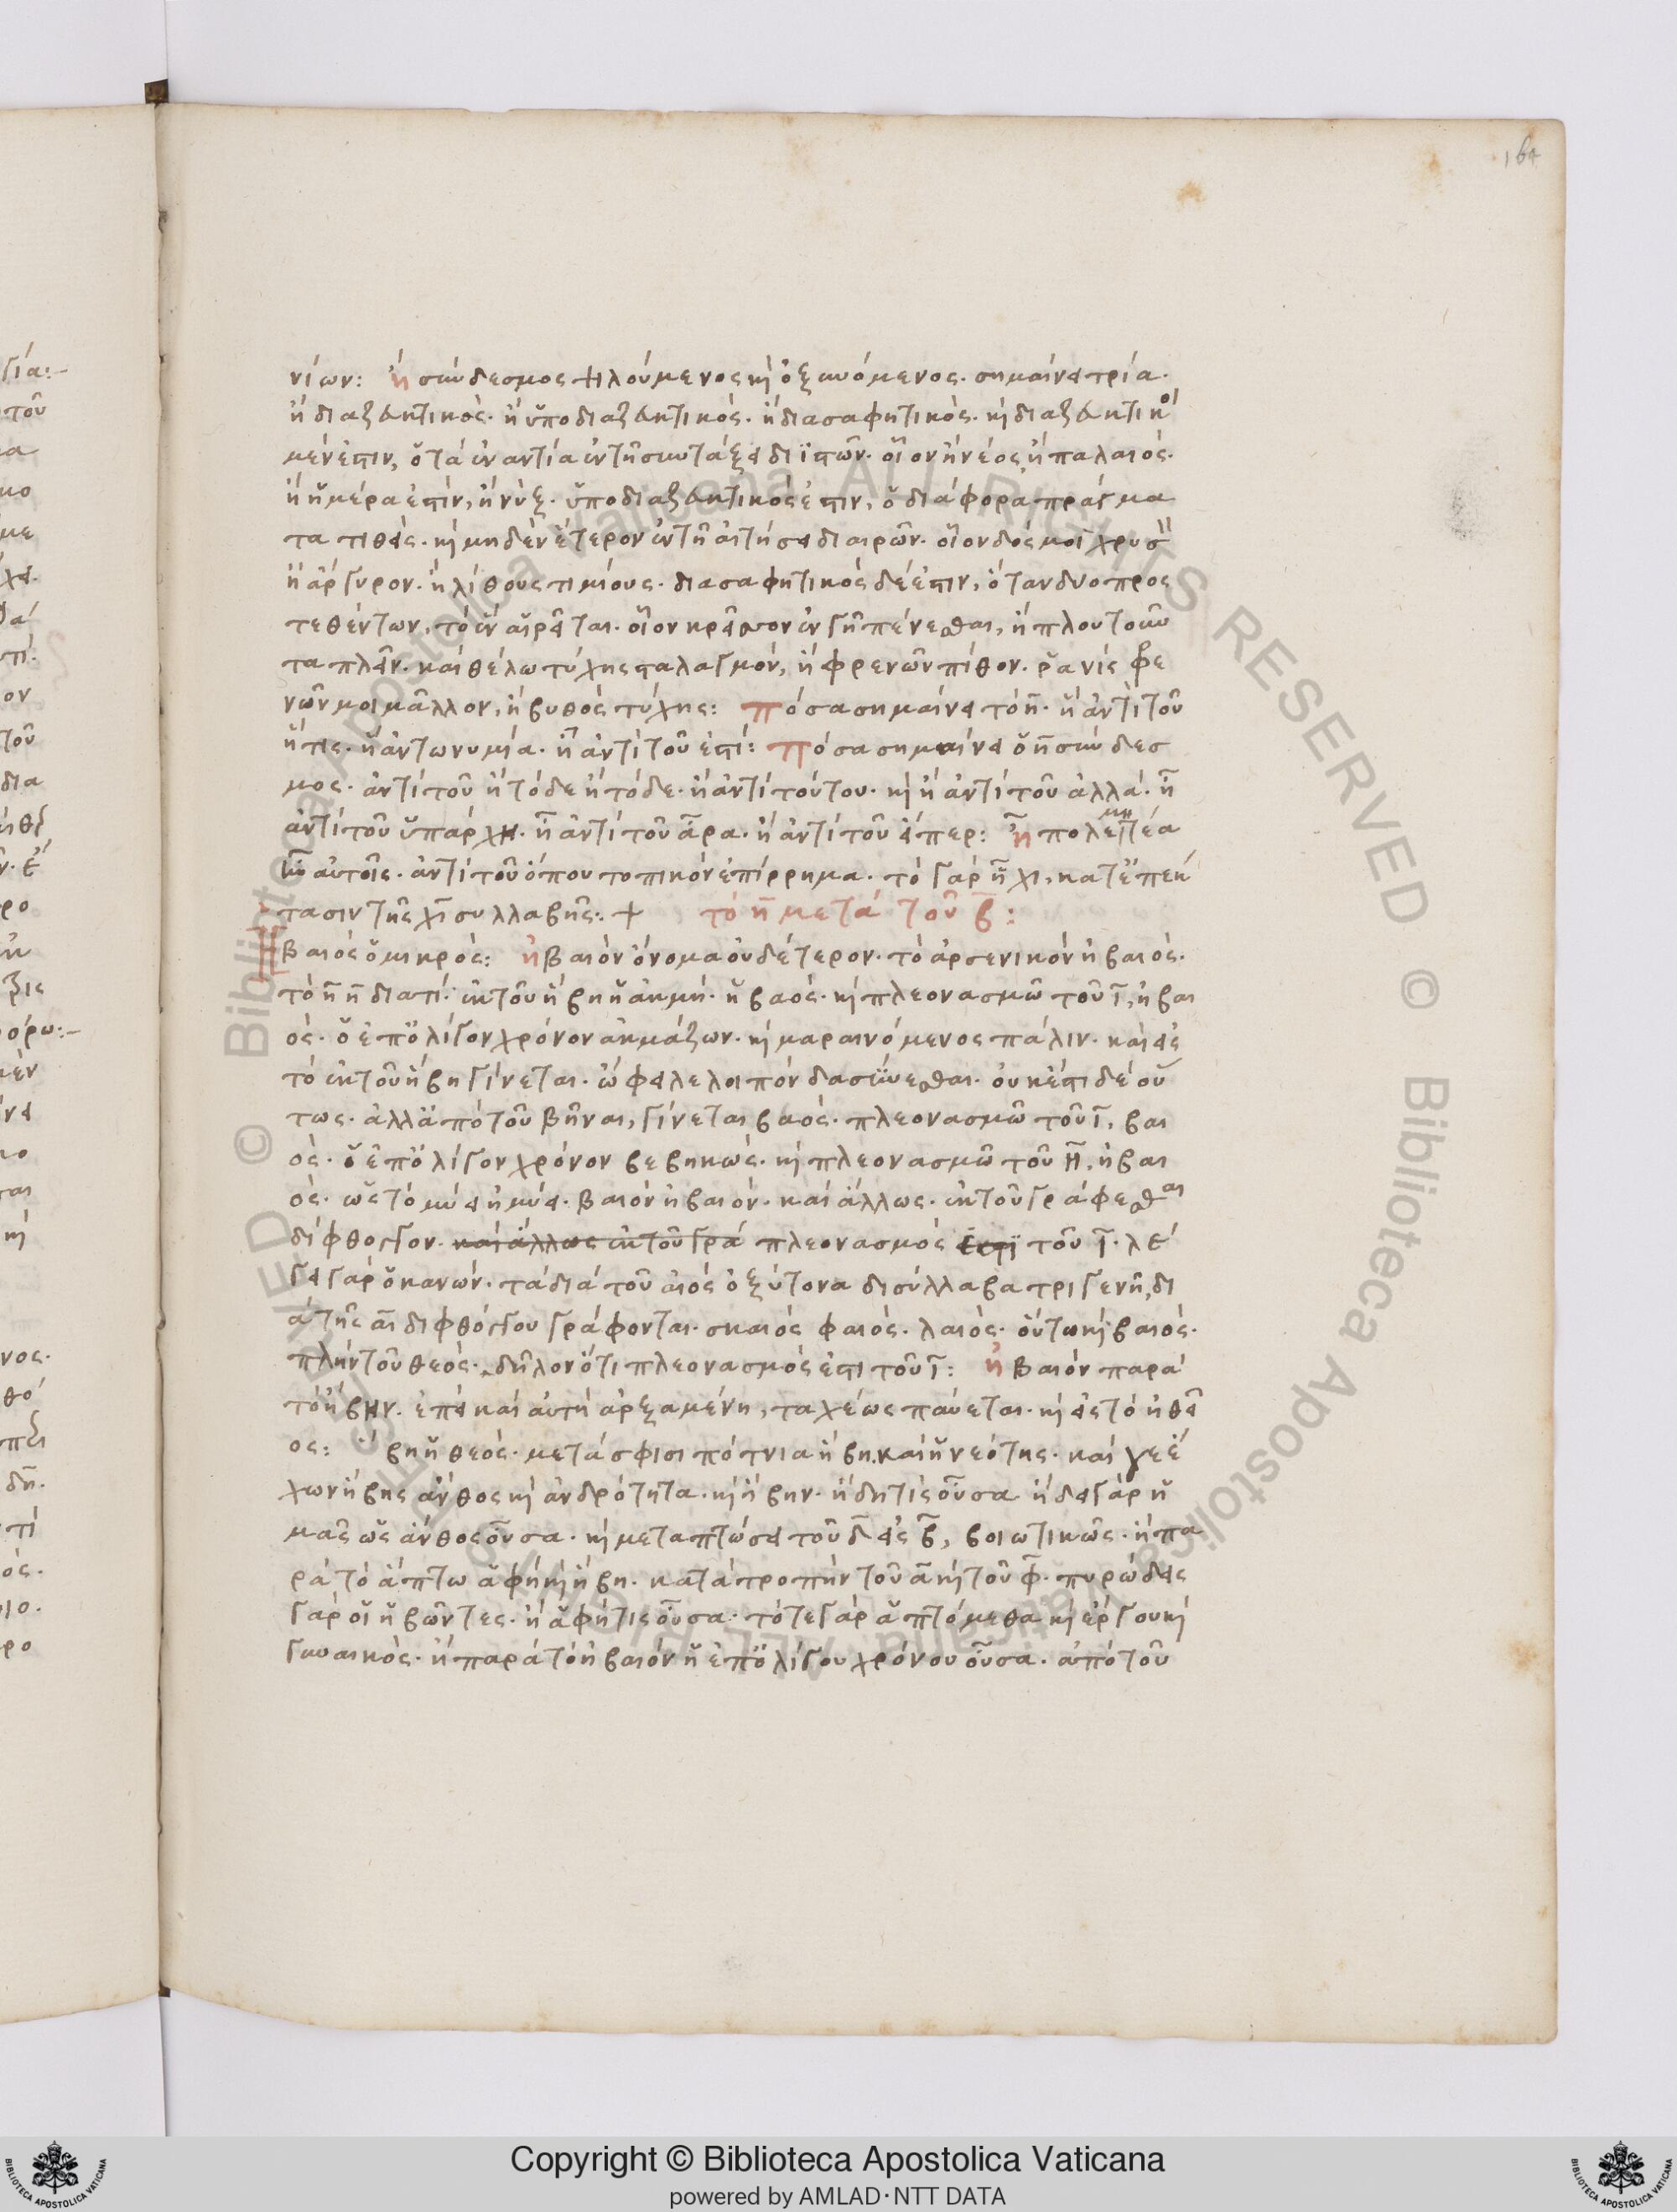 164
νίων: ἢ σύνδεσμος ψιλούμενος καὶ ὀξυνόμενος. σημαίνει τρία.
ἢ διαζευκτικὸς. ἢ ὑποδιαζευκτικὸς. ἢ διασαφητικὸς. καὶ διαζευκτικὸς
μέν ἐστιν, ὁ τὰ ἐναντία ἐν τῇ συντάξει διϊστῶν. οἷον ἢ νέος ἢ παλαιός.
ἢ ἡμέρα ἐστὶν, ἢ νὺξ. ὑποδιαζευκτικός ἐστιν, ὁ διάφορα πράγμα
τα τιθεὶς. καὶ μηδὲν ἕτερον ἐν τῇ αἰτήσει διαιρῶν. οἷον δός μοι χρυσὸν
ἢ ἄργυρον. ἢ λίθους τιμίους. διασαφητικὸς δέ ἐστιν, ὅταν δυο προς
τεθέντων, τὸ ἓν αἱρεῖται. οἷον κρεῖσσον ἐν γῇ πένεσθαι, ἢ πλουτοῦν
τα πλεῖν. καὶ θέλω τύχης σταλαγμὸν, ἢ φρενῶν πίθον. ῥανίς φρε
νῶν μοι μᾶλλον, ἢ βυθὸς τύχης: πόσα σημαίνει τὸ η. ἢ ἀντὶ τοῦ
ἥτις. ἢ ἀντωνυμία. ἢ ἀντὶ τοῦ ἐστί: πόσα σημαίνει ὁ η σύνδεσ
μος. ἀντὶ τοῦ ἢ τόδε ἢ τόδε. ἢ ἀντὶ τούτου. καὶ ἢ ἀντὶ τοῦ ἀλλά. ἢ
ἀντὶ τοῦ ὑπάρχη. ἢ ἀντὶ τοῦ ἆρα. ἢ ἀντὶ τοῦ εἴπερ: ἢ πολεμητέα
ἦν αὐτοῖς. ἀντὶ τοῦ ὅπου τοπικὸν ἐπίρρημα. τὸ γὰρ ἧχι, κατ' ἐπέκ
τασιν τῆς χι συλλαβῆς: + τὸ η μετὰ τοῦ β:
Ηβαιὸς ὁ μικρὸς: ἠβαιὸν ὄνομα οὐδέτερον. τὸ ἀρσενικὸν ἠβαιός.
τὸ η η διατί. ἐκ τοῦ ἥβη ἡ ἀκμή. ἡβαός. καὶ πλεονασμῶ τοῦ ι, ἠβαι
ός. ὁ ἐπ' ὀλίγον χρόνον ἀκμάζων. καὶ μαραινόμενος πάλιν. καὶ εἰς
τὸ ἐκ τοῦ ἥβη γίνεται. ὤφειλε λοιπὸν δασύνεσθαι. οὐκ ἔστι δὲ οὕ
τως. ἀλλ' ἀπὸ τοῦ βῆναι, γίνεται βαός. πλεονασμῶ τοῦ ι, βαι
ὸς. ὁ ἐπ' ὀλίγον χρόνον βεβηκὼς. καὶ πλεονασμῶ τοῦ η, ἠβαι
ός. ὡς τὸ μύει ἠμύει. βαιὸν ἠβαιόν. καὶ ἄλλως. ἐκ τοῦ γράφεσθαι
δίφθογγον. καὶ ἄλλως ἐκ τοῦ γρά πλεονασμός ἐστι τοῦ ι. λέ
γει γὰρ ὁ κανών. τὰ διὰ τοῦ αιός ὀξύτονα δισύλλαβα τριγενῆ, δι
ὰ τῆς αι διφθόγγου γράφονται. σκαιός φαιός. λαιός. οὕτω καὶ βαιός.
πλὴν τοῦ θεός. δῆλον ὅτι πλεονασμός ἐστι τοῦ ι: ἠβαιὸν παρὰ
τὸ ἥβην. ἐπεὶ καὶ αὐτὴ ἀρξαμένη, ταχέως παύεται. καὶ εἰς τὸ ἠθεῖ
ος: ἥβη ἡ θεός. μετὰ σφισι πότνια ἥβη. καὶ ἡ νεότης. καὶ γε ἔ
χων ἥβης ἄνθος καὶ ἀνδρότητα. καὶ ἥβην. ἥδη τίς οὖσα ἥδει γὰρ ἡ
μᾶς ὡς ἄνθος οὖσα. καὶ μεταπτώσει τοῦ δ εἰς β, βοιωτικῶς. ἢ πα
ρὰ τὸ ἅπτω ἁφὴ καὶ ἥβη. κατὰ τροπὴν τοῦ α καὶ τοῦ φ. πυρώδεις
γὰρ οἱ ἡβῶντες. ἢ ἁφή τις οὖσα. τότε γὰρ ἁπτόμεθα καὶ ἔργου καὶ
γυναικὸς. ἢ παρὰ τὸ ἠβαιόν ἡ ἐπ' ὀλίγου χρόνου οὖσα. ἀπὸ τοῦ
© Biblioteca Apostolica Vaticana ALL RIGHTS RESERVED
Copyright © Biblioteca Apostolica Vaticana
powered by AMLAD·NTT DATA
BIBLIOTECA APOSTOLICA VATICANA
BIBLIOTECA APOSTOLICA VATICANA